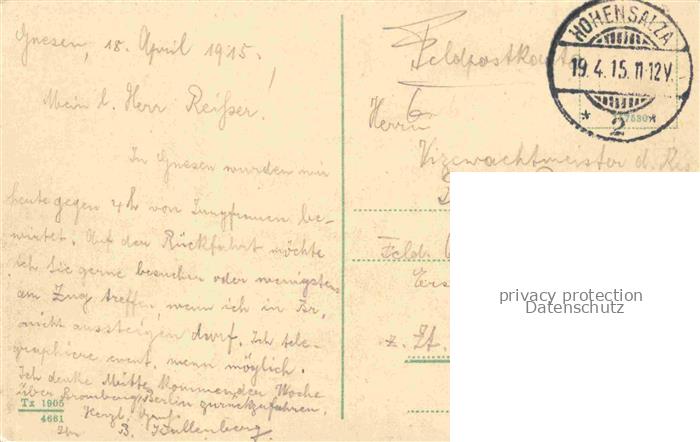 Gnesen, 18. April 1915.
Mein l. Herr Reißer!
In Gnesen wurden wir
heute gegen 4 h von Jungfrauen be-
wirtet. Auf der Rückfahrt möchte
ich Sie gerne besuchen oder wenigstens
am Zug treffen, wenn ich in Br.
nicht aussteigen darf. Ich tele-
graphiere event. wenn möglich.
Ich denke Mitte kommender Woche
über Bromberg/Berlin zurückzufahren.
Herzl. Gruß
Ihr B. Wallenberg.
Tx 1905
4661
Feldpostkarte
HOHENSALZA
19.4.15.11-12V.
* 2 *
Herrn
Vizewachtmeister d. Res
Feld.
Ers
z. Zt.
privacy protection
Datenschutz